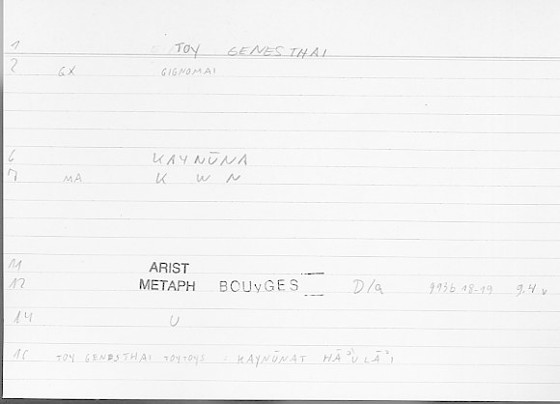 1 TOY GENESTHAI
2 GX GIGNOMAI
6 KAYNŪNA
7 MA K W N
11 ARIST
12 METAPH BOUyGES D/a 993b 18-19 9.4
14 U
16 TOY GENESTHAI TOYTOYS : KAYNŪNAT